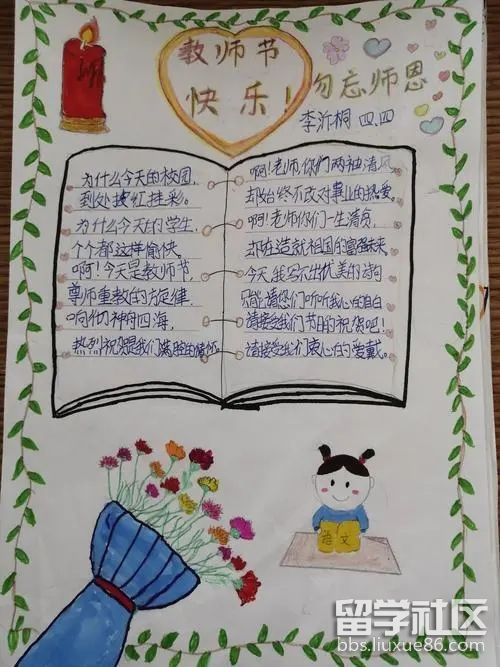 教师节
快乐！
勿忘师恩
李沂桐 四.四
为什么今天的校园,
到处披红挂彩。
为什么今天的学生,
个个都这样愉快
啊!今天是教师节,
尊师重教的旋律,
响彻神府四海,
热烈祝愿我们满腔的情怀。
啊!老师,你们两袖清风
却始终不改对事业的热爱。
啊!老师你们一生清贫
却在造就祖国的富强未来
今天,我写不出优美的诗句
只能请你们听听我心的自白
请接受我们节日的祝贺吧!
请接受我们衷心的爱戴。
语文
留学社区
bbs.liuxue86.com